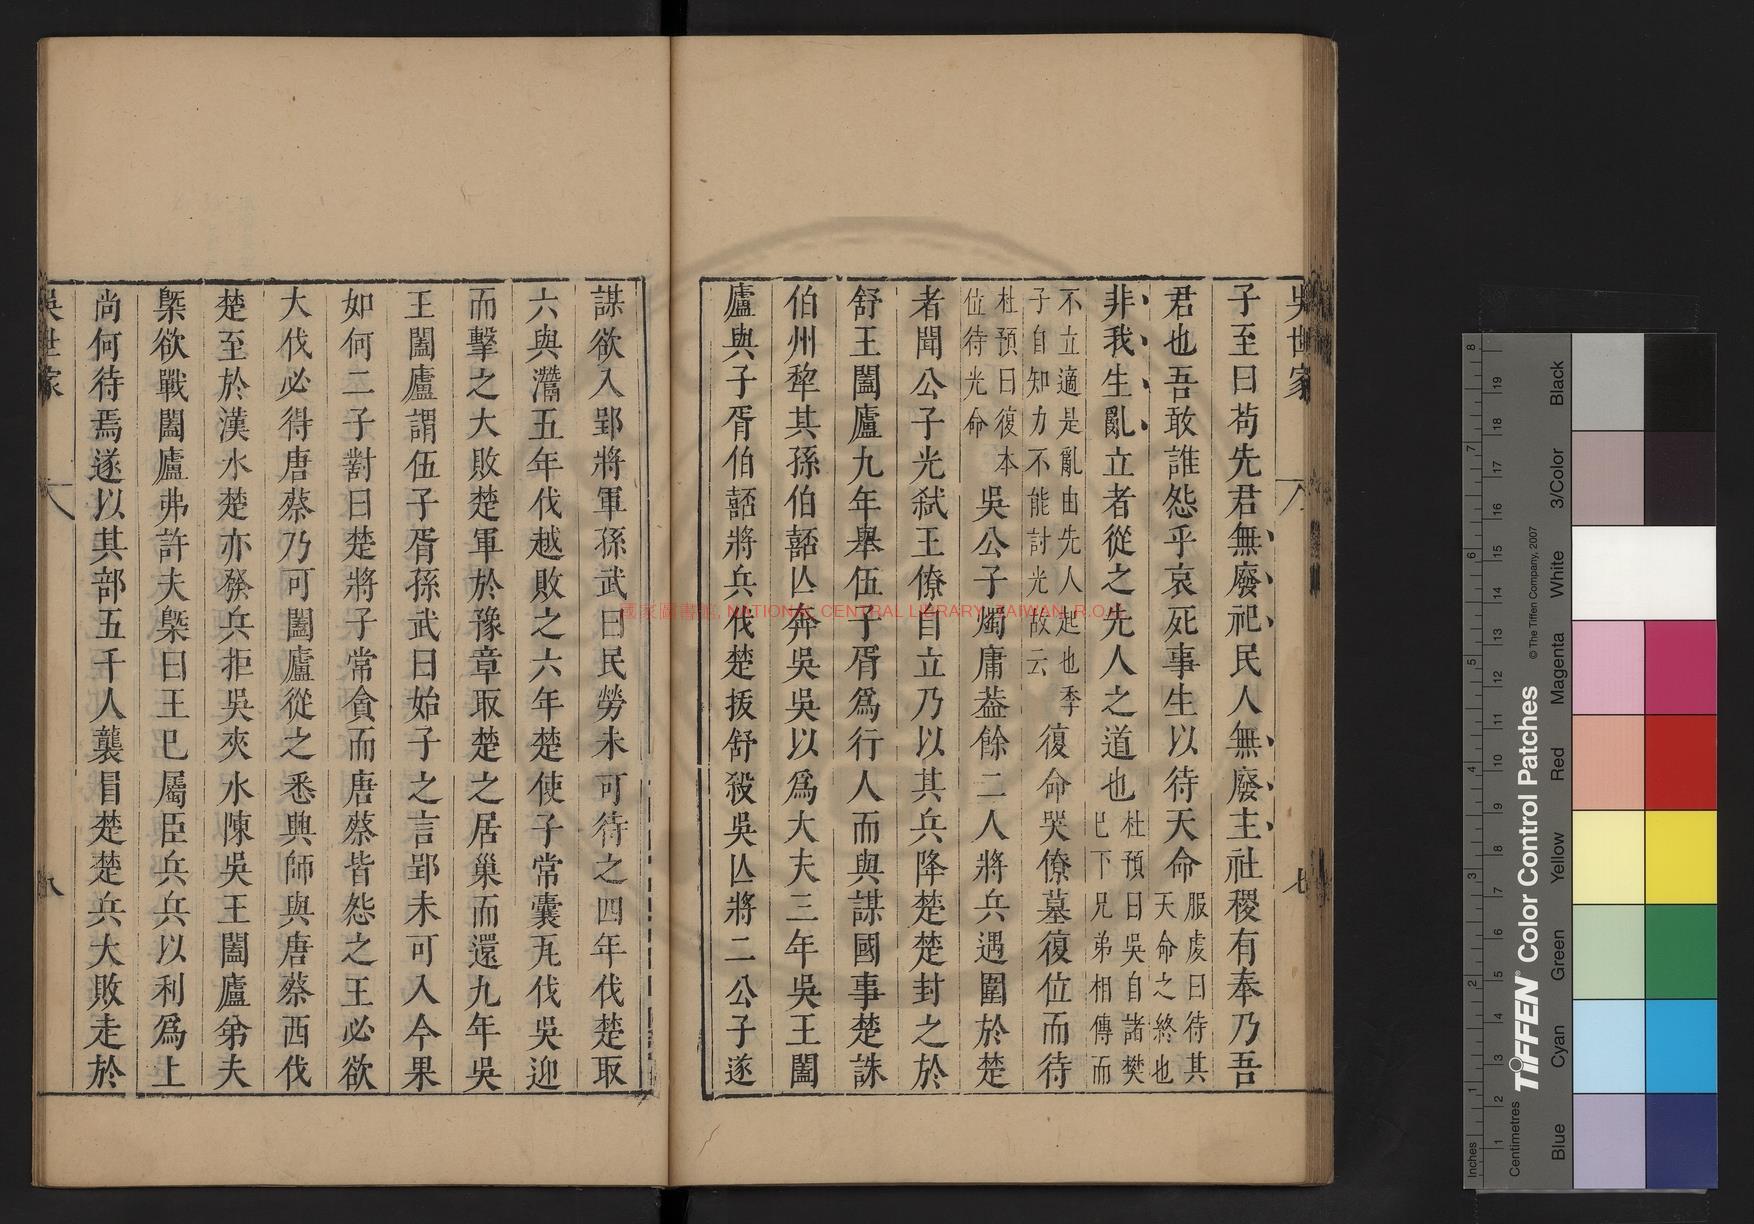 吳世家 七
子至曰苟先君無廢祀民人無廢主社稷有奉乃吾
君也吾敢誰怨乎哀死事生以待天命服虔曰待其
天命之終也
非我生亂立者從之先人之道也杜預曰吳自諸樊
巳下兄弟相傳而
不立適是亂由先人起也季
子自知力不能討光故云復命哭僚墓復位而待
杜預曰復本
位待光命吳公子燭庸葢餘二人將兵遇圍於楚
者聞公子光弒王僚自立乃以其兵降楚楚封之於
舒王闔廬九年舉伍子胥爲行人而與謀國事楚誅
伯州犂其孫伯嚭亾奔吳吳以爲大夫三年吳王闔
廬與子胥伯嚭將兵伐楚拔舒殺吳亾將二公子遂
謀欲入郢將軍孫武曰民勞未可待之四年伐楚取
六與灊五年伐越敗之六年楚使子常囊瓦伐吳迎
而擊之大敗楚軍於豫章取楚之居巢而還九年吳
王闔廬謂伍子胥孫武曰始子之言郢未可入今果
如何二子對曰楚將子常貪而唐蔡皆怨之王必欲
大伐必得唐蔡乃可闔廬從之悉興師與唐蔡西伐
楚至於漢水楚亦發兵拒吳夾水陳吳王闔廬弟夫
槩欲戰闔廬弗許夫槩曰王巳屬臣兵兵以利爲上
尚何待焉遂以其部五千人襲冒楚楚兵大敗走於
吳世家 八
國家圖書館, NATIONAL CENTRAL LIBRARY, TAIWAN, R.O.C
Inches
Centimetres
TIFFEN® Color Control Patches
© The Tiffen Company, 2007
Blue
Cyan
Green
Yellow
Red
Magenta
White
3/Color
Black